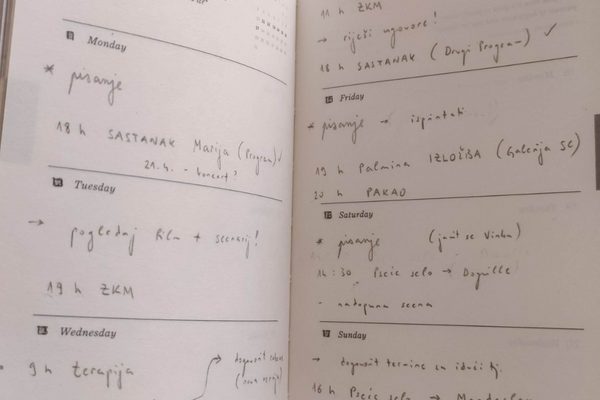 Monday
* pisanje
18 h SASTANAK Marija (Program) ✓
21.4. - koncert?
Tuesday
→ pogledaj film + scenarij!
19 h ZKM
Wednesday
9 h terapija
→ dogovorit
11 h ZKM
→ riješi ugovore!
18 h SASTANAK (Drugi Program) ✓
Friday
* pisanje → isprintati
19 h Palmina IZLOŽBA (Galerija SC)
20 h PAKAO
Saturday
* pisanje (javit se Vinku)
14:30 Pseće selo → Dogville
- nadopuna scena
Sunday
→ dogovorit termine za idući tj.
16 h Pseće selo →